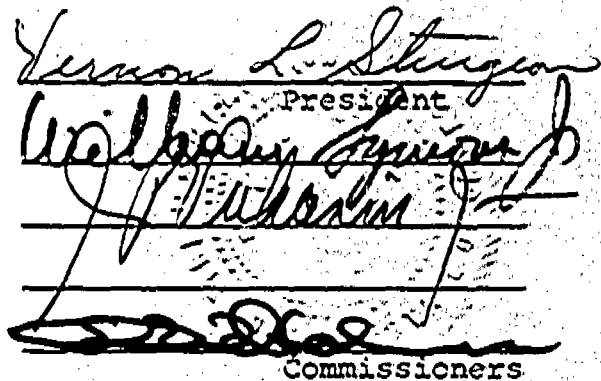 Vernon L. Sturgeon
President
William Symons Jr
Vukasin Jr
Commissioners